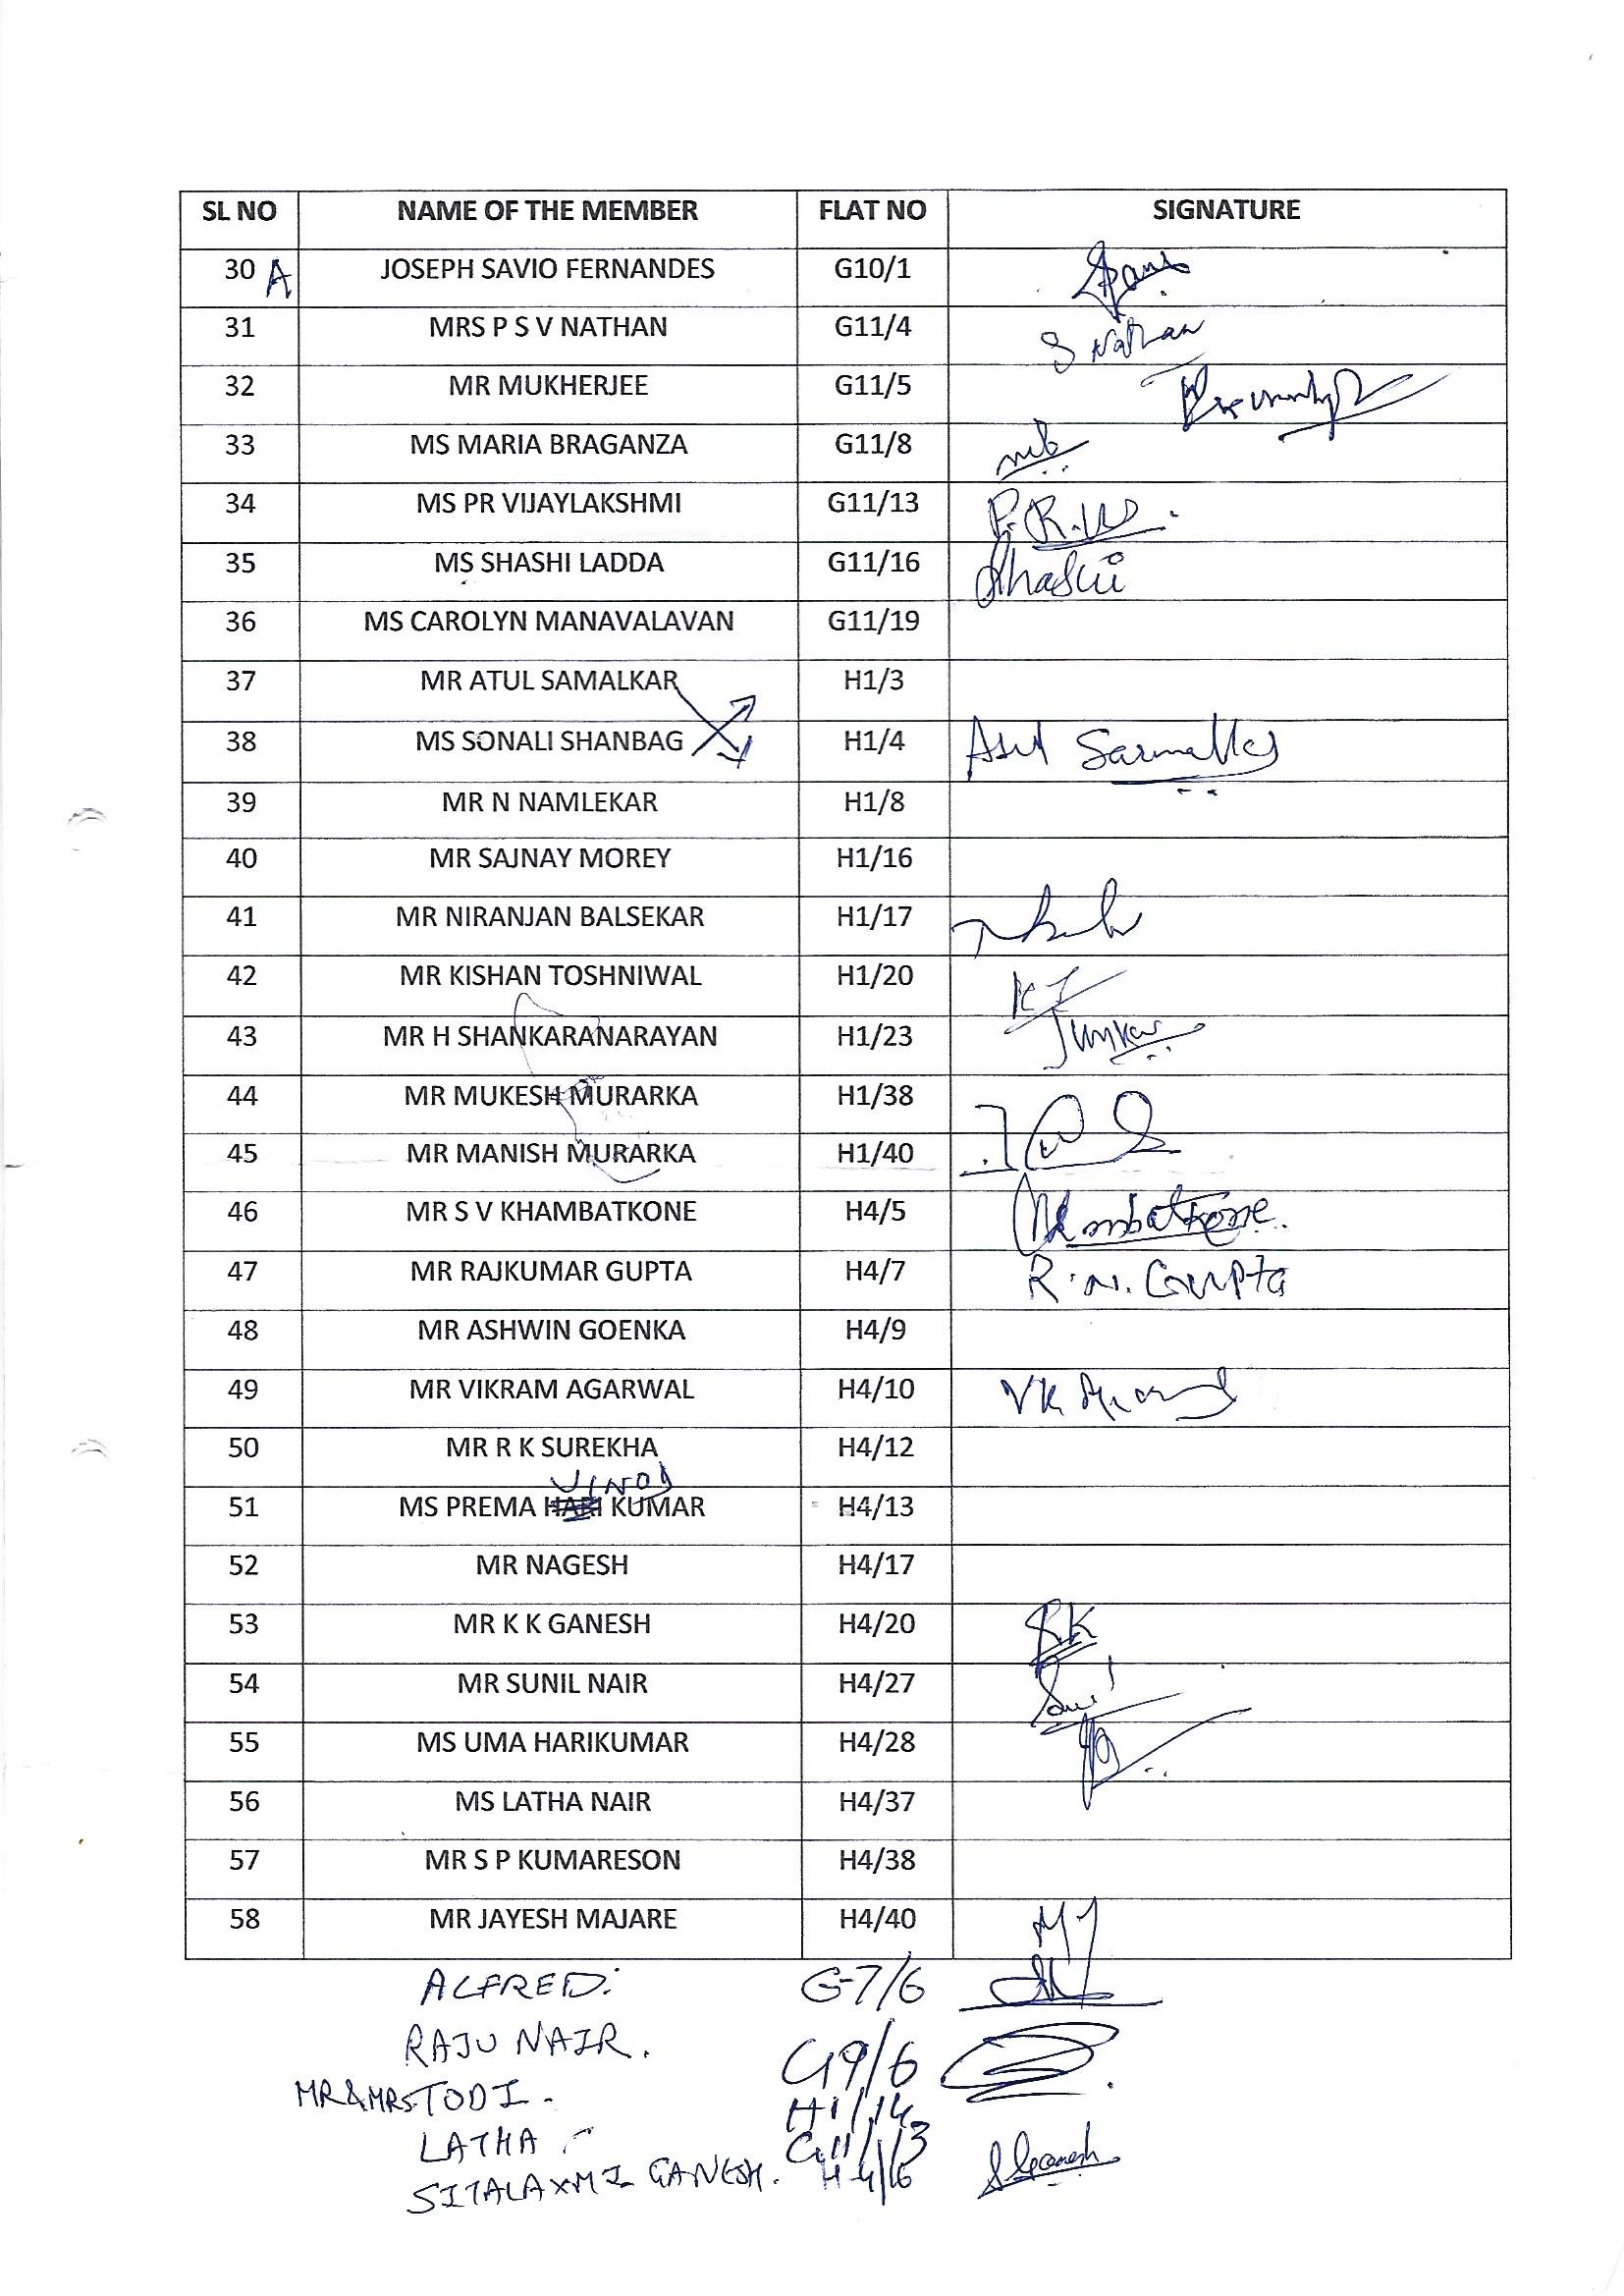 SL NO NAME OF THE MEMBER FLAT NO SIGNATURE
30 A JOSEPH SAVIO FERNANDES G10/1
31 MRS P S V NATHAN G11/4 S Nathan
32 MR MUKHERJEE G11/5
33 MS MARIA BRAGANZA G11/8
34 MS PR VIJAYLAKSHMI G11/13
35 MS SHASHI LADDA G11/16 Shashi
36 MS CAROLYN MANAVALAVAN G11/19
37 MR ATUL SAMALKAR H1/3
38 MS SONALI SHANBAG H1/4
39 MR N NAMLEKAR H1/8
40 MR SAJNAY MOREY H1/16
41 MR NIRANJAN BALSEKAR H1/17
42 MR KISHAN TOSHNIWAL H1/20
43 MR H SHANKARANARAYAN H1/23
44 MR MUKESH MURARKA H1/38
45 MR MANISH MURARKA H1/40
46 MR S V KHAMBATKONE H4/5
47 MR RAJKUMAR GUPTA H4/7 R.N. Gupta
48 MR ASHWIN GOENKA H4/9
49 MR VIKRAM AGARWAL H4/10
50 MR R K SUREKHA H4/12
VINOD
51 MS PREMA HARI KUMAR H4/13
52 MR NAGESH H4/17
53 MR K K GANESH H4/20
54 MR SUNIL NAIR H4/27
55 MS UMA HARIKUMAR H4/28
56 MS LATHA NAIR H4/37
57 MR S P KUMARESON H4/38
58 MR JAYESH MAJARE H4/40
ALFRED: G-7/6
RAJU NAIR. G9/6
MR&MRS TODI - H1/14
LATHA - G11/13
SITALAXMI GANESH. H4/16 S Ganesh